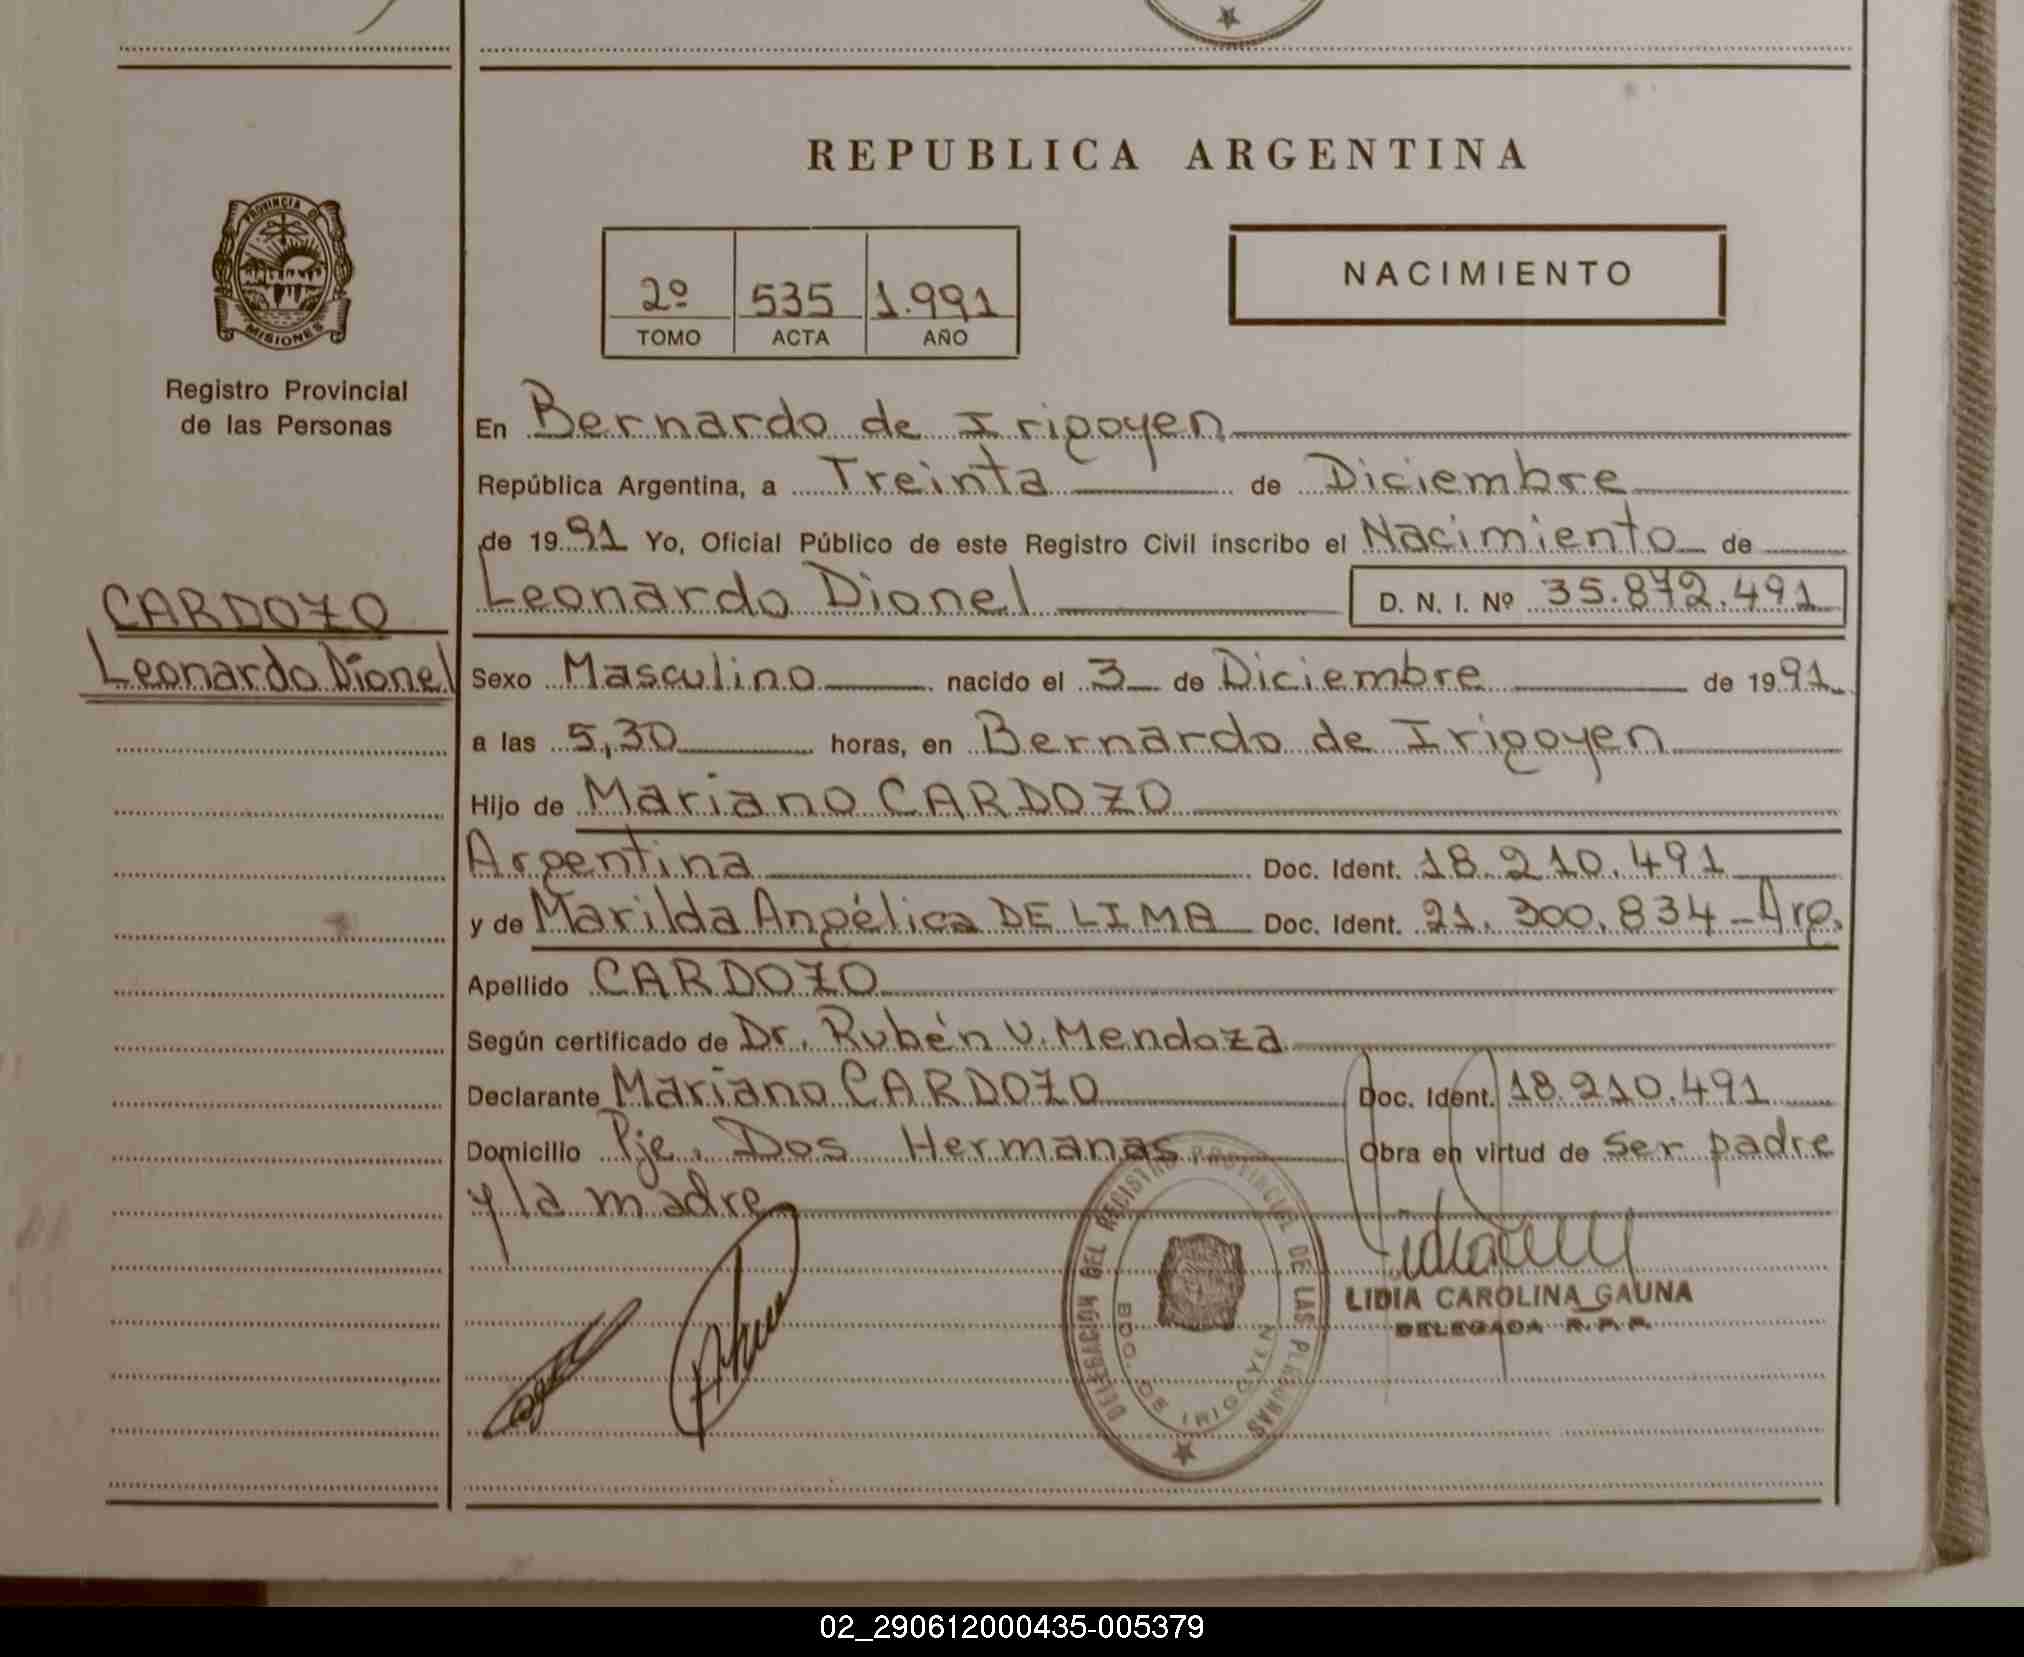 REPUBLICA ARGENTINA
PROVINCIA DE
MISIONES
Registro Provincial
de las Personas
2º 535 1.991
TOMO ACTA AÑO
NACIMIENTO
En Bernardo de Irigoyen
República Argentina, a Treinta de Diciembre
de 1991 Yo, Oficial Público de este Registro Civil inscribo el Nacimiento de
CARDOZO
Leonardo Dionel
Leonardo Dionel D. N. I. Nº 35.872.491
Sexo Masculino nacido el 3 de Diciembre de 1991
a las 5,30 horas, en Bernardo de Irigoyen
Hijo de Mariano CARDOZO
Argentina Doc. Ident. 18.210.491
y de Marilda Angélica DE LIMA Doc. Ident. 21.300.834-Arg.
Apellido CARDOZO
Según certificado de Dr. Rubén V. Mendoza
Declarante Mariano CARDOZO Doc. Ident. 18.210.491
Domicilio Pje. Dos Hermanas Obra en virtud de ser padre
y la madre
DELEGACION DEL REGISTRO PROVINCIAL DE LAS PERSONAS
BDO. DE IRIGOYEN
LIDIA CAROLINA GAUNA
DELEGADA R.P.P.
02_290612000435-005379